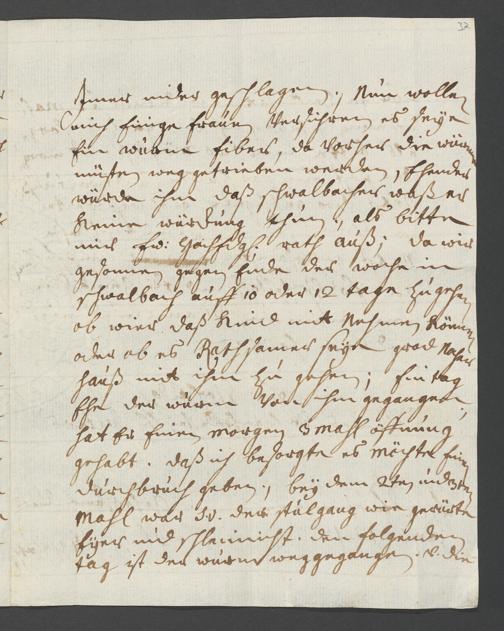 32
Immer nider geschlagen; Nun wollen
mich Einige frauen Versichren es seye
Ein wurm fiber, da Vorher die würm
müsten weg getrieben werden, Ehender
würde ihm daß schwalbacher waßer
Keine würckung thun, als bitte
mir Ew: rath auß; da wir
gesonnen gegen Ende der woche in
schwalbach auff 10 oder 12 tage zu gehen
ob wier daß Kind mit Nehmen Können
oder ob es Rathsamer seye grad Nacher
hauß mit ihm zu gehen; Ein tag
Ehe der wurm Von ihm gegangen,
hat Er Einen morgen 3 mahl öffnung
gehabt. daß ich besorgte es möchte Ein
durchbruch geben; bey dem 2ten und 3ten
Mahl war der stulgang wie gerürte
Eyer und schleimicht. den folgenden
tag ist der wurm weggegangen. die